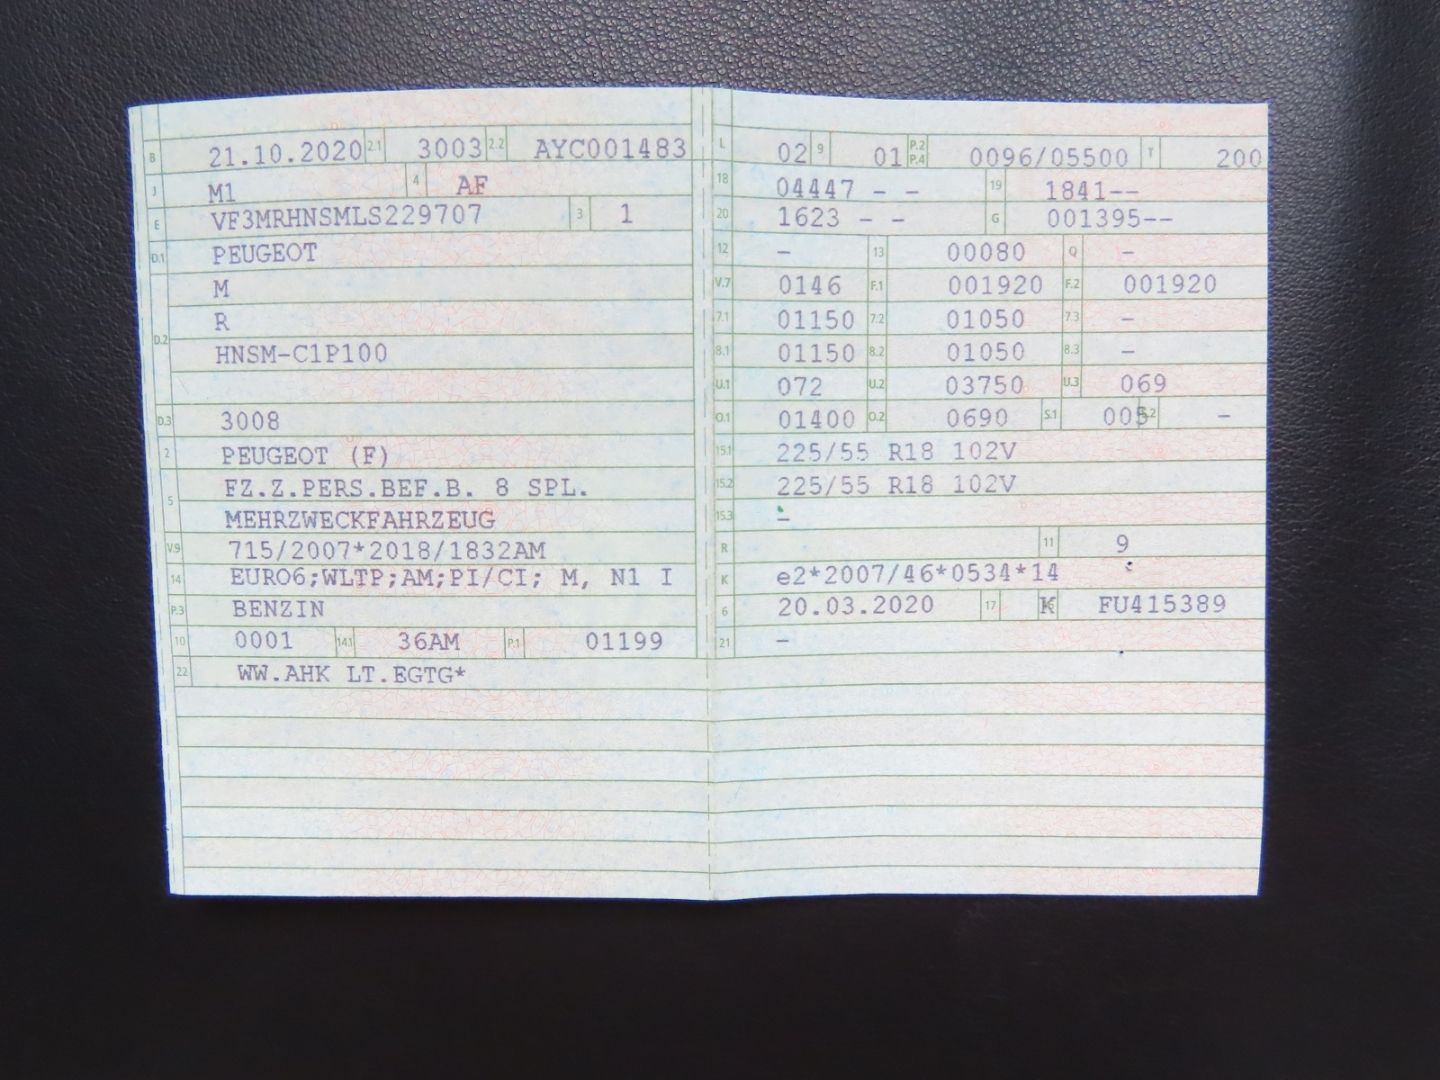 B 21.10.2020 2.1 3003 2.2 AYC001483
J M1 4 AF
E VF3MRHNSMLS229707 3 1
D.1 PEUGEOT
M
D.2 R
HNSM-C1P100
D.3 3008
2 PEUGEOT (F)
5 FZ.Z.PERS.BEF.B. 8 SPL.
MEHRZWECKFAHRZEUG
V.9 715/2007*2018/1832AM
14 EURO6;WLTP;AM;PI/CI; M, N1 I
P.3 BENZIN
10 0001 14.1 36AM P.1 01199
22 WW.AHK LT.EGTG*
L 02 9 01 P.2 P.4 0096/05500 T 200
18 04447 - - 19 1841--
20 1623 - - G 001395--
12 - 13 00080 Q -
V.7 0146 F.1 001920 F.2 001920
7.1 01150 7.2 01050 7.3 -
8.1 01150 8.2 01050 8.3 -
U.1 072 U.2 03750 U.3 069
O.1 01400 O.2 0690 S.1 005 S.2 -
15.1 225/55 R18 102V
15.2 225/55 R18 102V
15.3 -
R 11 9
K e2*2007/46*0534*14
6 20.03.2020 17 K FU415389
21 -